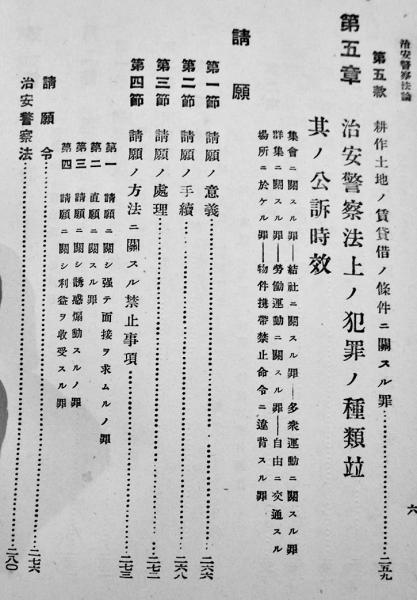 治安警察法論
六
第五款 耕作土地ノ賃貸借ノ條件ニ關スル罪……二五九
第五章 治安警察法上ノ犯罪ノ種類竝
其ノ公訴時效
集會ニ關スル罪―結社ニ關スル罪―多衆運動ニ關スル罪
群集ニ關スル罪―勞働運動ニ關スル罪―自由ニ交通スル
場所ニ於ケル罪―物件携帶禁止命令ニ違背スル罪
請願
第一節 請願ノ意義……二六六
第二節 請願ノ手續……二六八
第三節 請願ノ處理……二七二
第四節 請願ノ方法ニ關スル禁止事項……二七三
第一 請願ニ關シ强テ面接ヲ求ムルノ罪
第二 直願ニ關スル罪
第三 請願ニ關シ誘惑煽動スルノ罪
第四 請願ニ關シ利益ヲ收受スル罪
請願令……二七六
治安警察法……二八〇